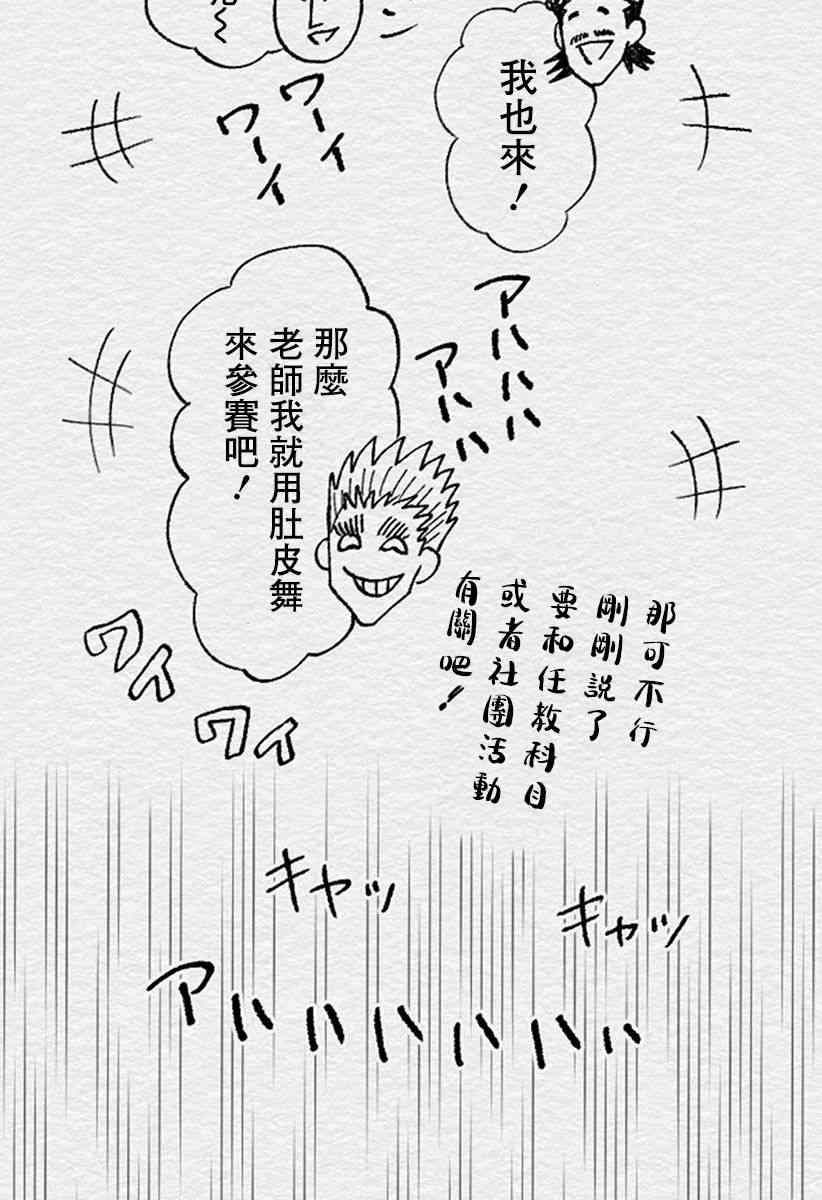 我也來！
ワーイ
ワーイ
アハハハ
アハハ
那麼
老師我就用肚皮舞
來參賽吧！
那可不行
剛剛說了
要和任教科目
或者社團活動
有關吧！
ワイ
ワイ
キャッ
キャッ
アハハハハハハ